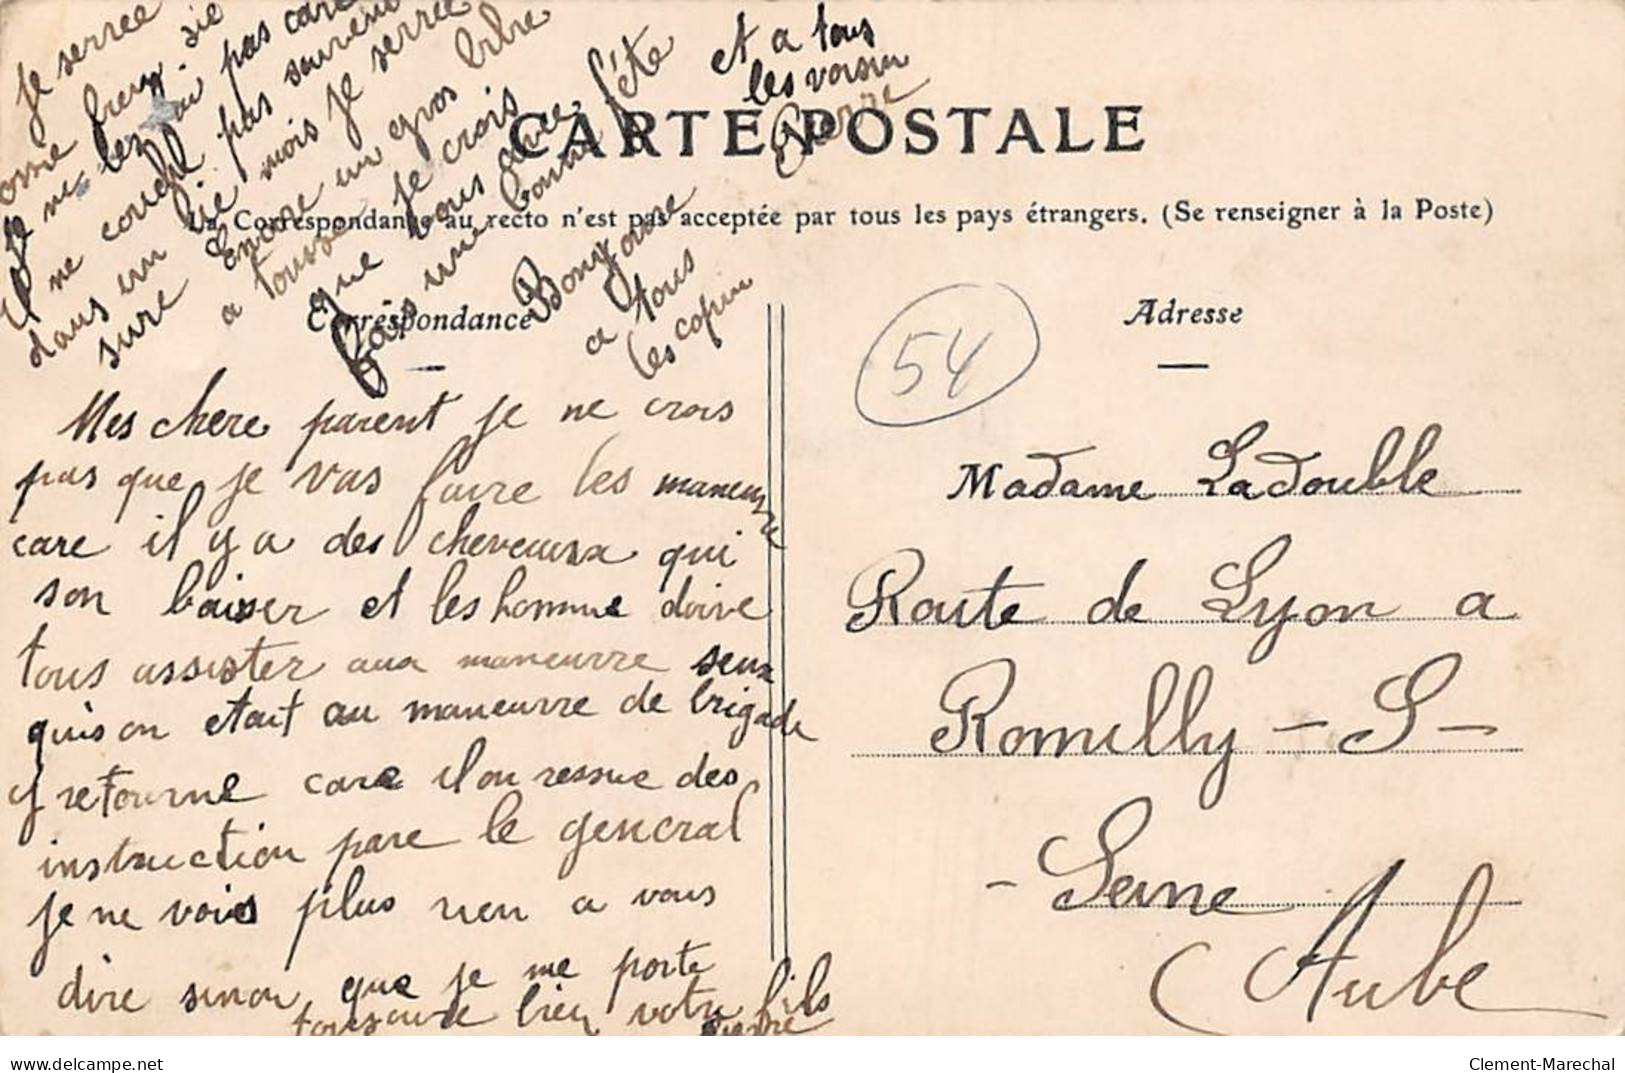 CARTE POSTALE
La Correspondance au recto n'est pas acceptée par tous les pays étrangers. (Se renseigner à la Poste)
Correspondance
Mes chere parent je ne crois
pas que je vas faire les maneuvre
care il y a des chevauxx qui
son baiser et les homme doive
tous assister aux maneuvre seux
quison etait au maneurre de brigade
y retourne care il on ressue des
instruction pare le general
je ne vois plus rien a vous
dire sinon que je me porte
toujoure bien votre fils
Pierre
je serree
je ne les ai pas care
il ne couche pas souvent
dans un lie mois je serree
sure Encore un gros libre
a tousse
que vous je crois
pas une bonne fête
Bonjoure
a tous
les copin
et a tous
les voisin
Pierre
54
Adresse
Madame Ladouble
Route de Lyon a
Romilly - S -
- Seine
Aube
delcampe.net
Clement-Marechal